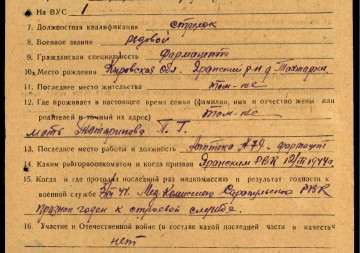 6. На ВУС 1
7. Должностная квалификация стрелок
8. Военное звание рядовой
9. Гражданская специальность Фармацевт
10. Место рождения Кировская обл. Яранский р-н д.
11. Последнее место жительства там-же
12. Где проживает в настоящее время семья (фамилия, имя и отчество жены или
родителей и точный их адрес) там-же
мать Татаринова П. Г.
13. Последнее место работы и должность Аптека А79 фармацевт
14. Каким райгорвоенкоматом и когда призван Яранским РВК 1944г.
15. Когда и где проходил последний раз медкомиссию и результат годности к
военной службе Мед.Комиссией Сарапульского РВК
признан годен к строевой службе.
16. Участие в Отечественной войне (в составе какой последней части в качестве
нет